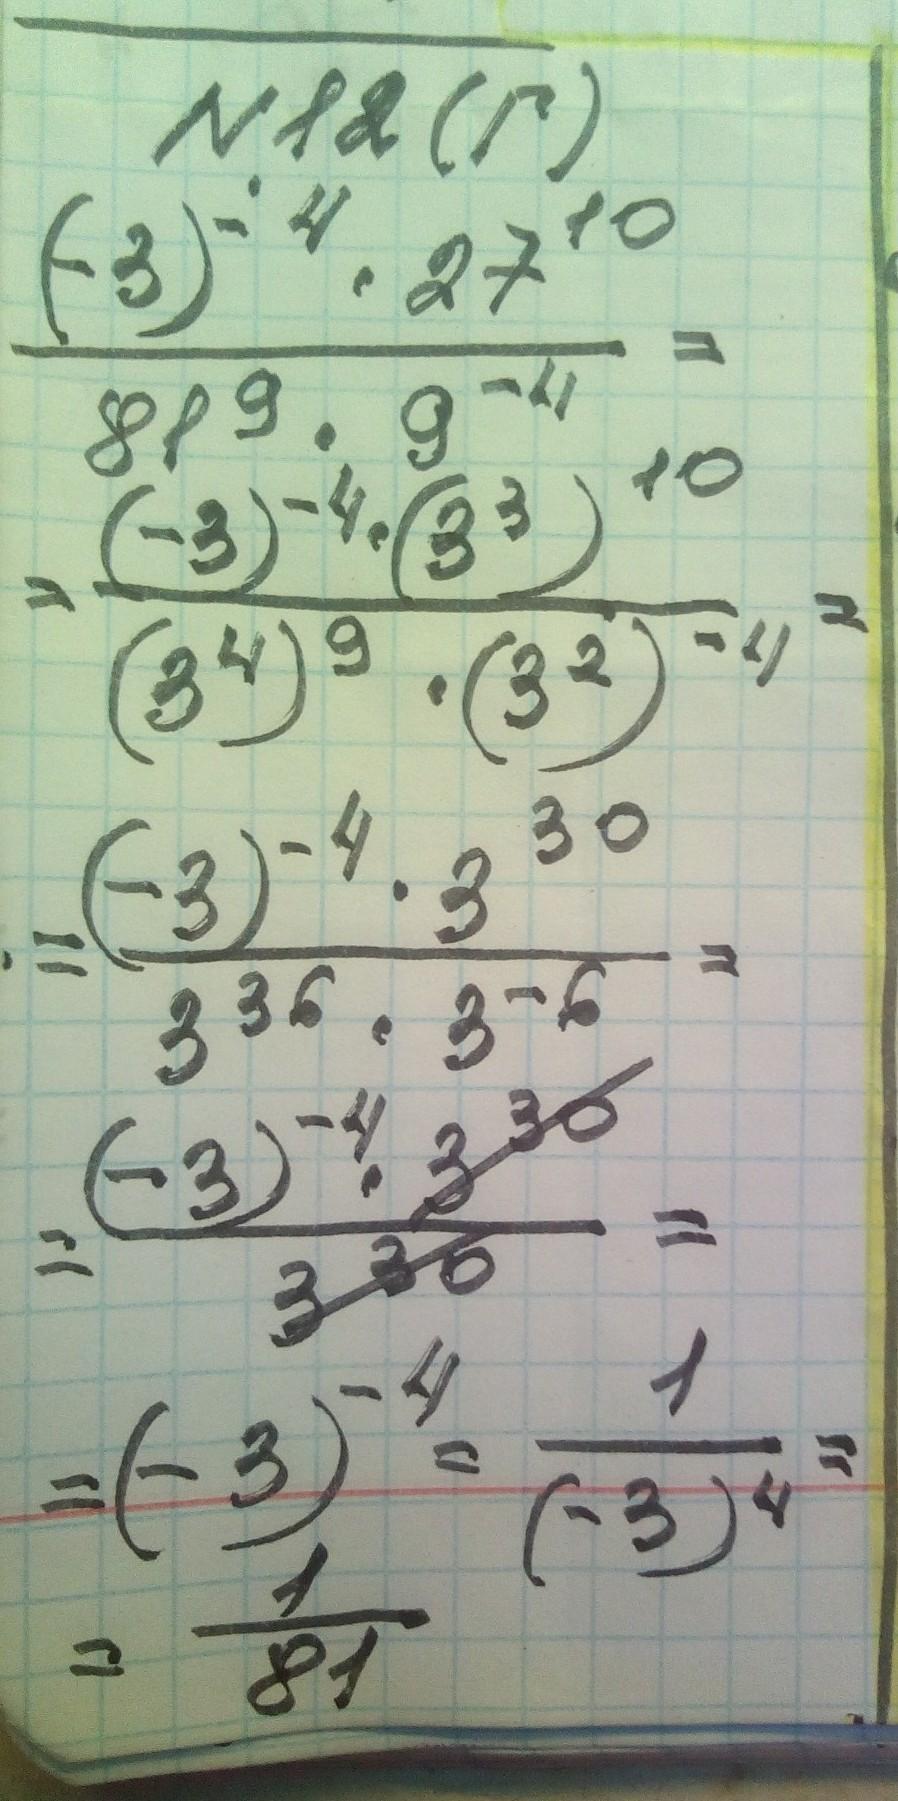 N12(г)
(-3)^-4 · 27^10
/ 81^9 · 9^-4 =
= (-3)^-4 · (3^3)^10
/ (3^4)^9 · (3^2)^-4 =
= (-3)^-4 · 3^30
/ 3^36 · 3^-6 =
= (-3)^-4 · 3^30
/ 3^30 =
= (-3)^-4 = 1 / (-3)^4 =
= 1 / 81